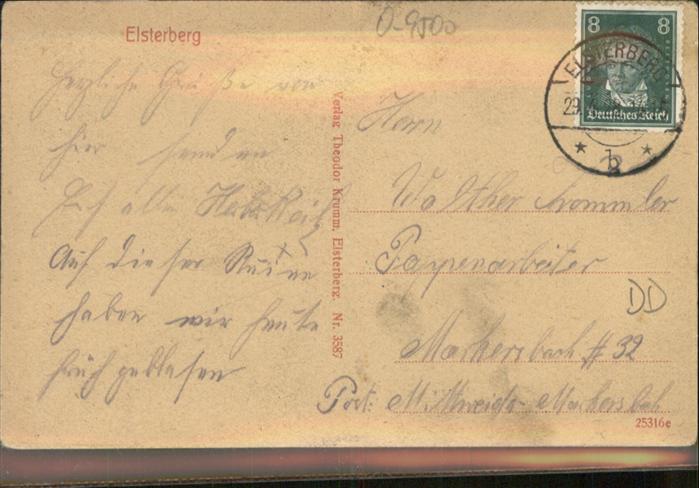 Elsterberg
O-9800
8 8
ELSTERBERG
29.
Deutsches Reich
* b *
Herzliche Grüße von
hier senden
Euch allen
Auf dieser Ruine
haben wir heute
früh geblasen
Verlag Theodor Krumm, Elsterberg. Nr. 3587
Herrn
Walther Trommler
Pappenarbeiter
DD
Markersbach # 32
Post: Mittweida-Markersbch
25316e